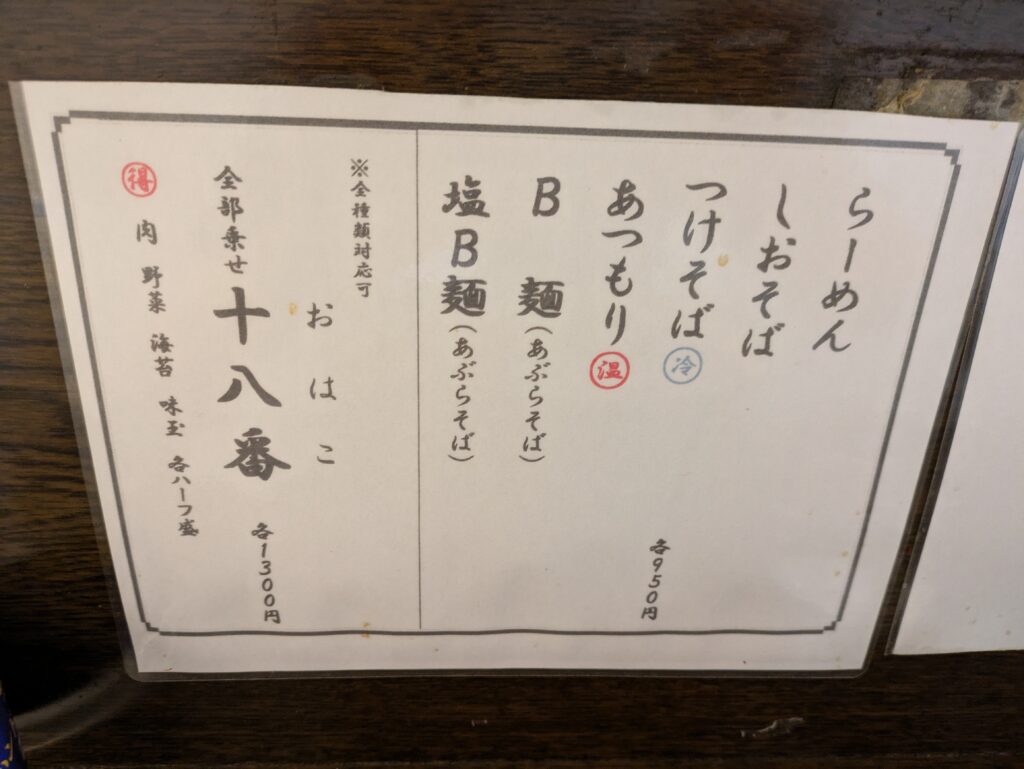 らーめん
しおそば
つけそば 冷
あつもり 温
各950円
B 麺(あぶらそば)
塩B麺(あぶらそば)
※全種類対応可
おはこ
全部乗せ 十八番 各1300円
得 肉 野菜 海苔 味玉 各ハーフ盛